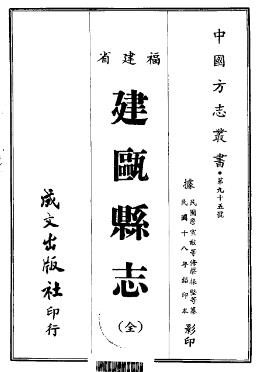 中國方志叢書·第九十五號
據
民國詹宣猷等修蔡振堅等纂
民國十八年鉛印本
影印
福建省
建甌縣志
(全)
成文出版社印行